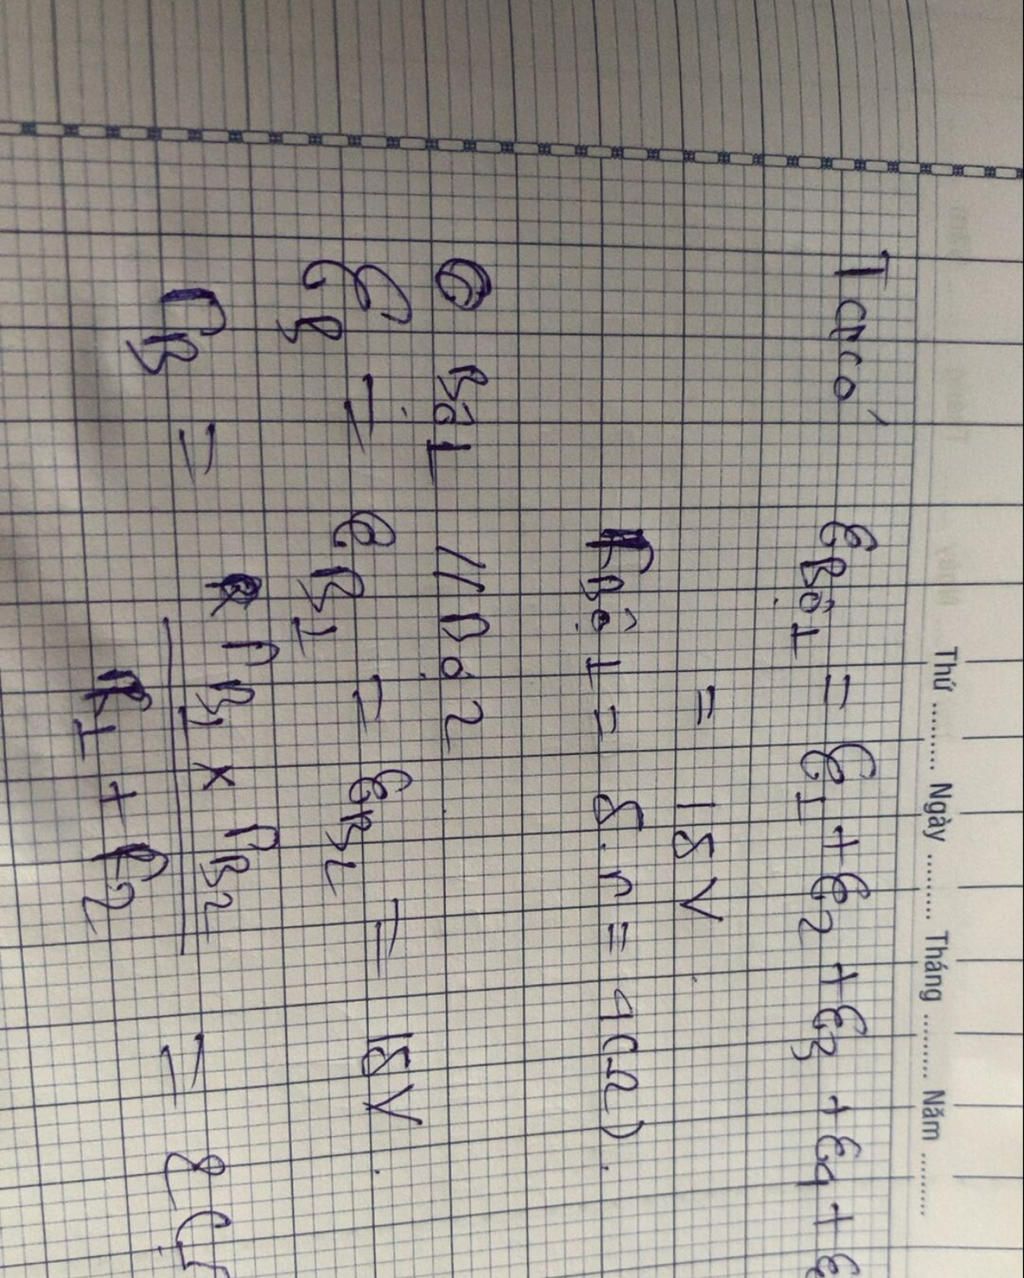 Thứ ........ Ngày ........ Tháng ........ Năm ........
Ta có ℰbộ1 = ℰ1 + ℰ2 + ℰ3 + ℰ4 + ℰ
= 18V
rbộ1 = 8.r = 4(Ω).
Bộ1 // Bộ2
ℰB = ℰB1 = ℰB2 = 18V.
rB = rB1 x rB2 / R1 + R2 = 2(